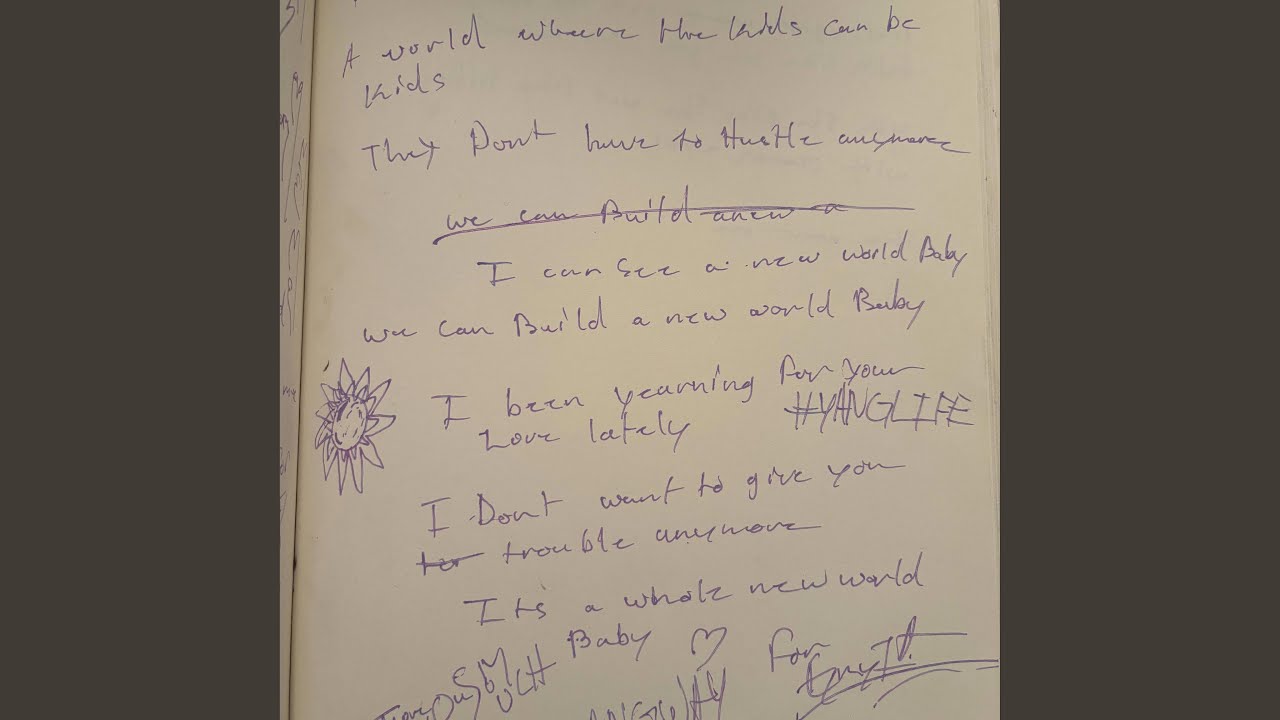 A world where the kids can be
kids
They Dont have to Hustle anymore
we can Build anew a
I can see a new world Baby
we can Build a new world Baby
I been yearning for your
Love lately #YANGLIFE
I Dont want to give you
trouble anymore
Its a whole new world
Baby ♡ for
SO MUCH